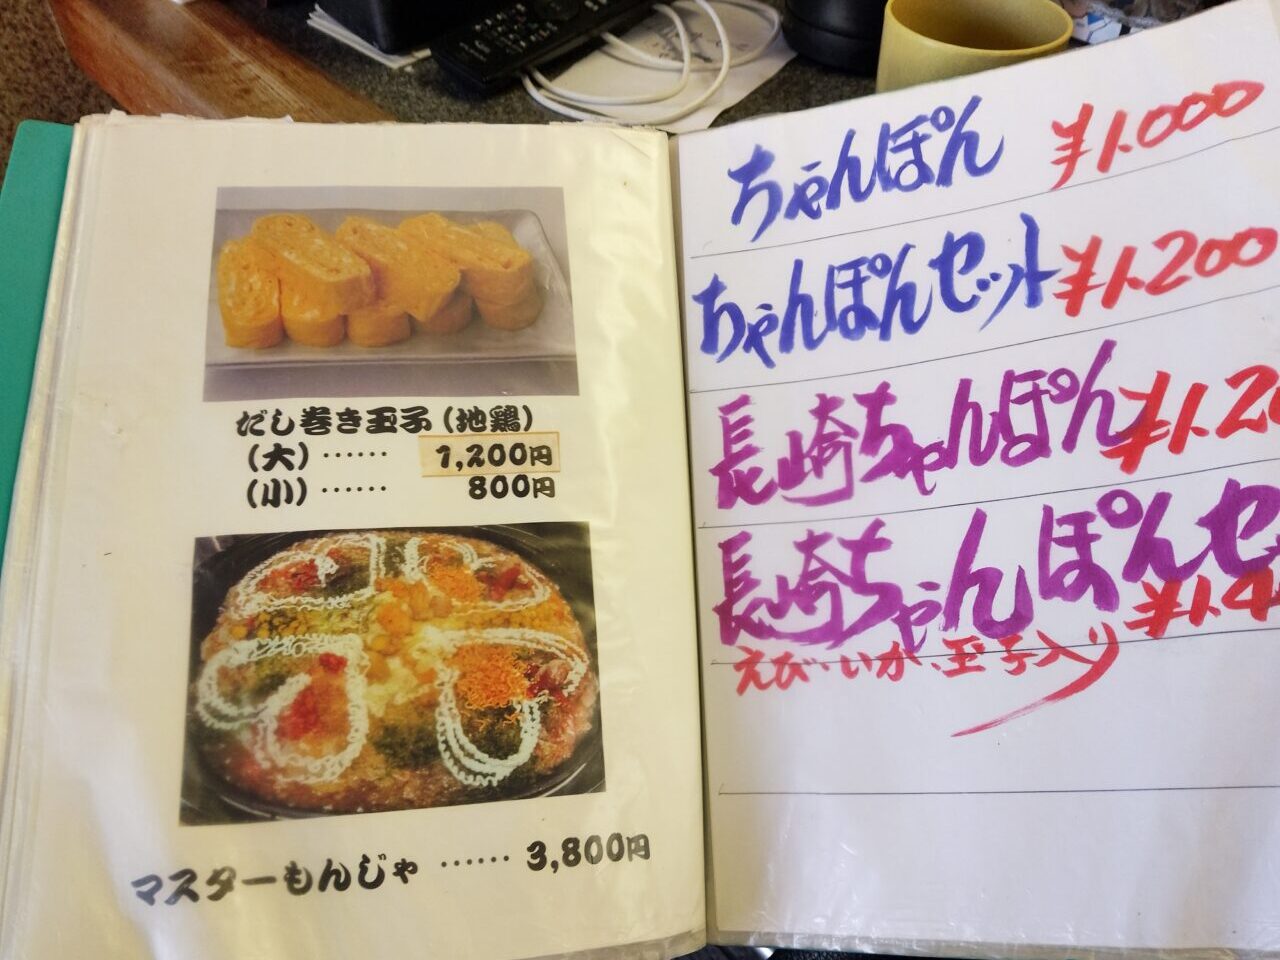 だし巻き玉子(地鶏)
(大)…… 1,200円
(小)…… 800円
マスターもんじゃ …… 3,800円
ちゃんぽん ¥1.000
ちゃんぽんセット ¥1.200
長崎ちゃんぽん ¥1.20
長崎ちゃんぽんセ
¥1.4
えび・いか、玉子入り